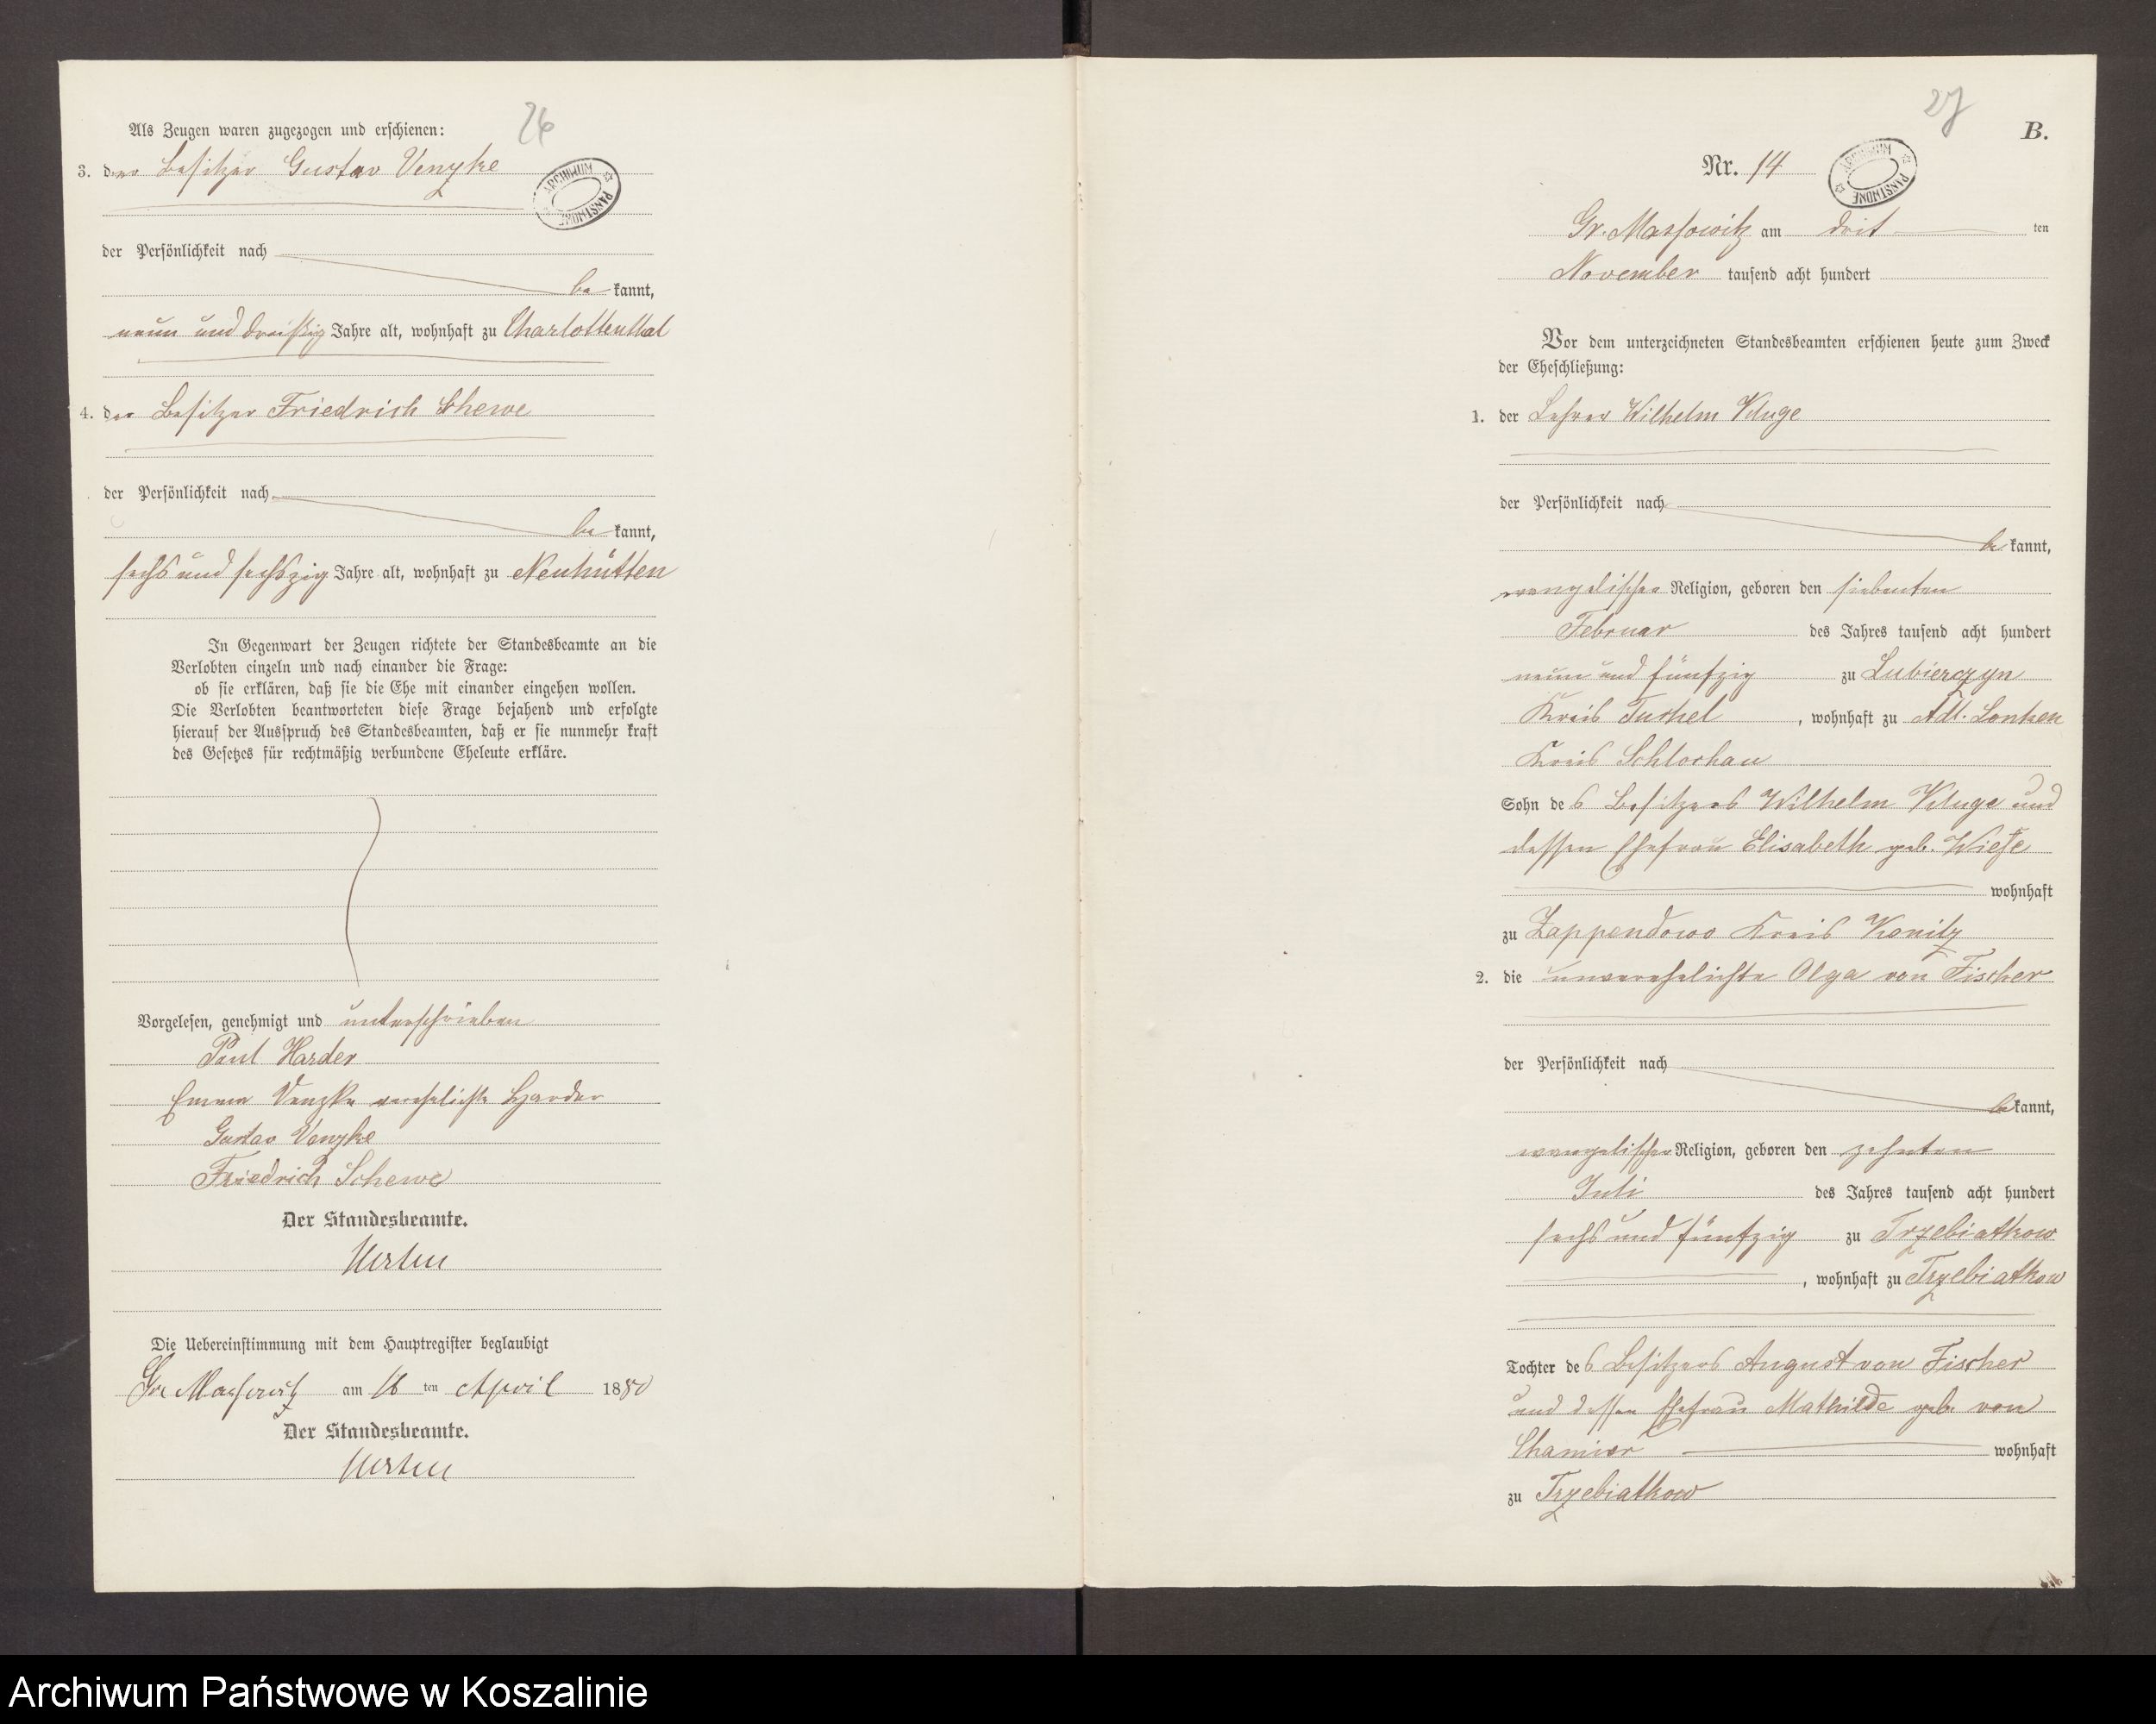 26
Als Zeugen waren zugezogen und erschienen:
3. der Besitzer Gustav Venzke
ARCHIWUM PAŃSTWOWE
der Persönlichkeit nach
be kannt,
neun und dreißig Jahre alt, wohnhaft zu Charlottenthal
4. der Besitzer Friedrich Schewe
der Persönlichkeit nach
be kannt,
sechs und sechszig Jahre alt, wohnhaft zu Neuhütten
In Gegenwart der Zeugen richtete der Standesbeamte an die
Verlobten einzeln und nach einander die Frage:
ob sie erklären, daß sie die Ehe mit einander eingehen wollen.
Die Verlobten beantworteten diese Frage bejahend und erfolgte
hierauf der Ausspruch des Standesbeamten, daß er sie nunmehr kraft
des Gesetzes für rechtmäßig verbundene Eheleute erkläre.
Vorgelesen, genehmigt und unterschrieben
Paul Harder
Emma Venzke verehelichte Harder
Gustav Venzke
Friedrich Schewe
Der Standesbeamte.
Die Uebereinstimmung mit dem Hauptregister beglaubigt
Gr. Massowitz am 16 ten April 1880
Der Standesbeamte.
27
B.
Nr. 14
ARCHIWUM PAŃSTWOWE
Gr. Massowitz am drit ten
November tausend acht hundert
Vor dem unterzeichneten Standesbeamten erschienen heute zum Zweck
der Eheschließung:
1. der Lehrer Wilhelm Kluge
der Persönlichkeit nach
be kannt,
evangelischer Religion, geboren den siebenten
Februar des Jahres tausend acht hundert
neun und fünfzig zu Lubierczyn
Kreis Tuchel, wohnhaft zu Adl. Lonken
Kreis Schlochau
Sohn des Besitzers Wilhelm Kluge und
dessen Ehefrau Elisabeth geb. Wiese
wohnhaft
zu Zappendowo Kreis Konitz
2. die unverehelichte Olga von Fischer
der Persönlichkeit nach
be kannt,
evangelischer Religion, geboren den zehnten
Juli des Jahres tausend acht hundert
sechs und fünfzig zu Trzebiatkow
, wohnhaft zu Trzebiatkow
Tochter des Besitzers August von Fischer
und dessen Ehefrau Mathilde geb. von
Chamier wohnhaft
zu Trzebiatkow
Archiwum Państwowe w Koszalinie